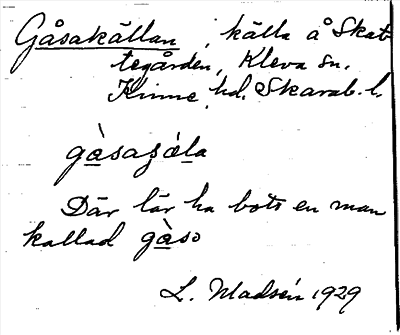 Gåsakällan, källa å Skat-
tegården, Kleva sn.
Kinne hd. Skarab. l.
gàsaʒä̀la
Där lär ha bott en man
kallad gàso
L. Madsén 1929